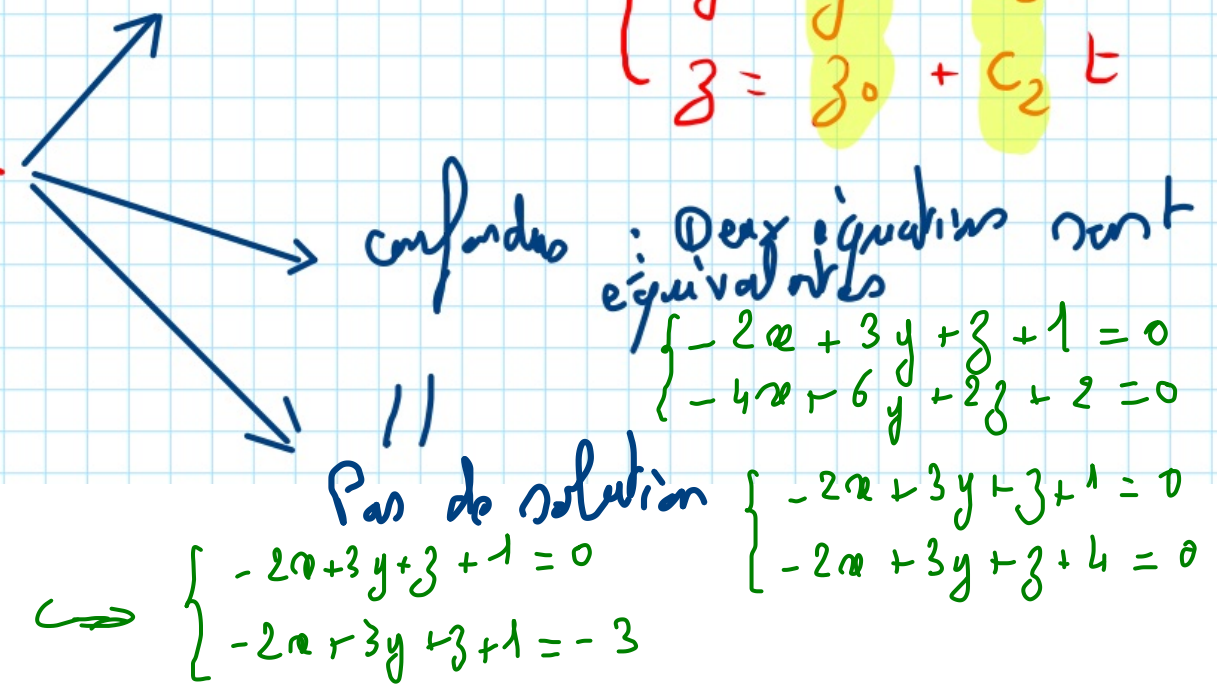 z = z₀ + c₂ t
confondus : Deux équations sont
équivalentes
{ -2x + 3y + z + 1 = 0
-4x + 6y + 2z + 2 = 0
//
Pas de solution
{ -2x + 3y + z + 1 = 0
-2x + 3y + z + 4 = 0
{ -2x + 3y + z + 1 = 0
-2x + 3y + z + 1 = -3